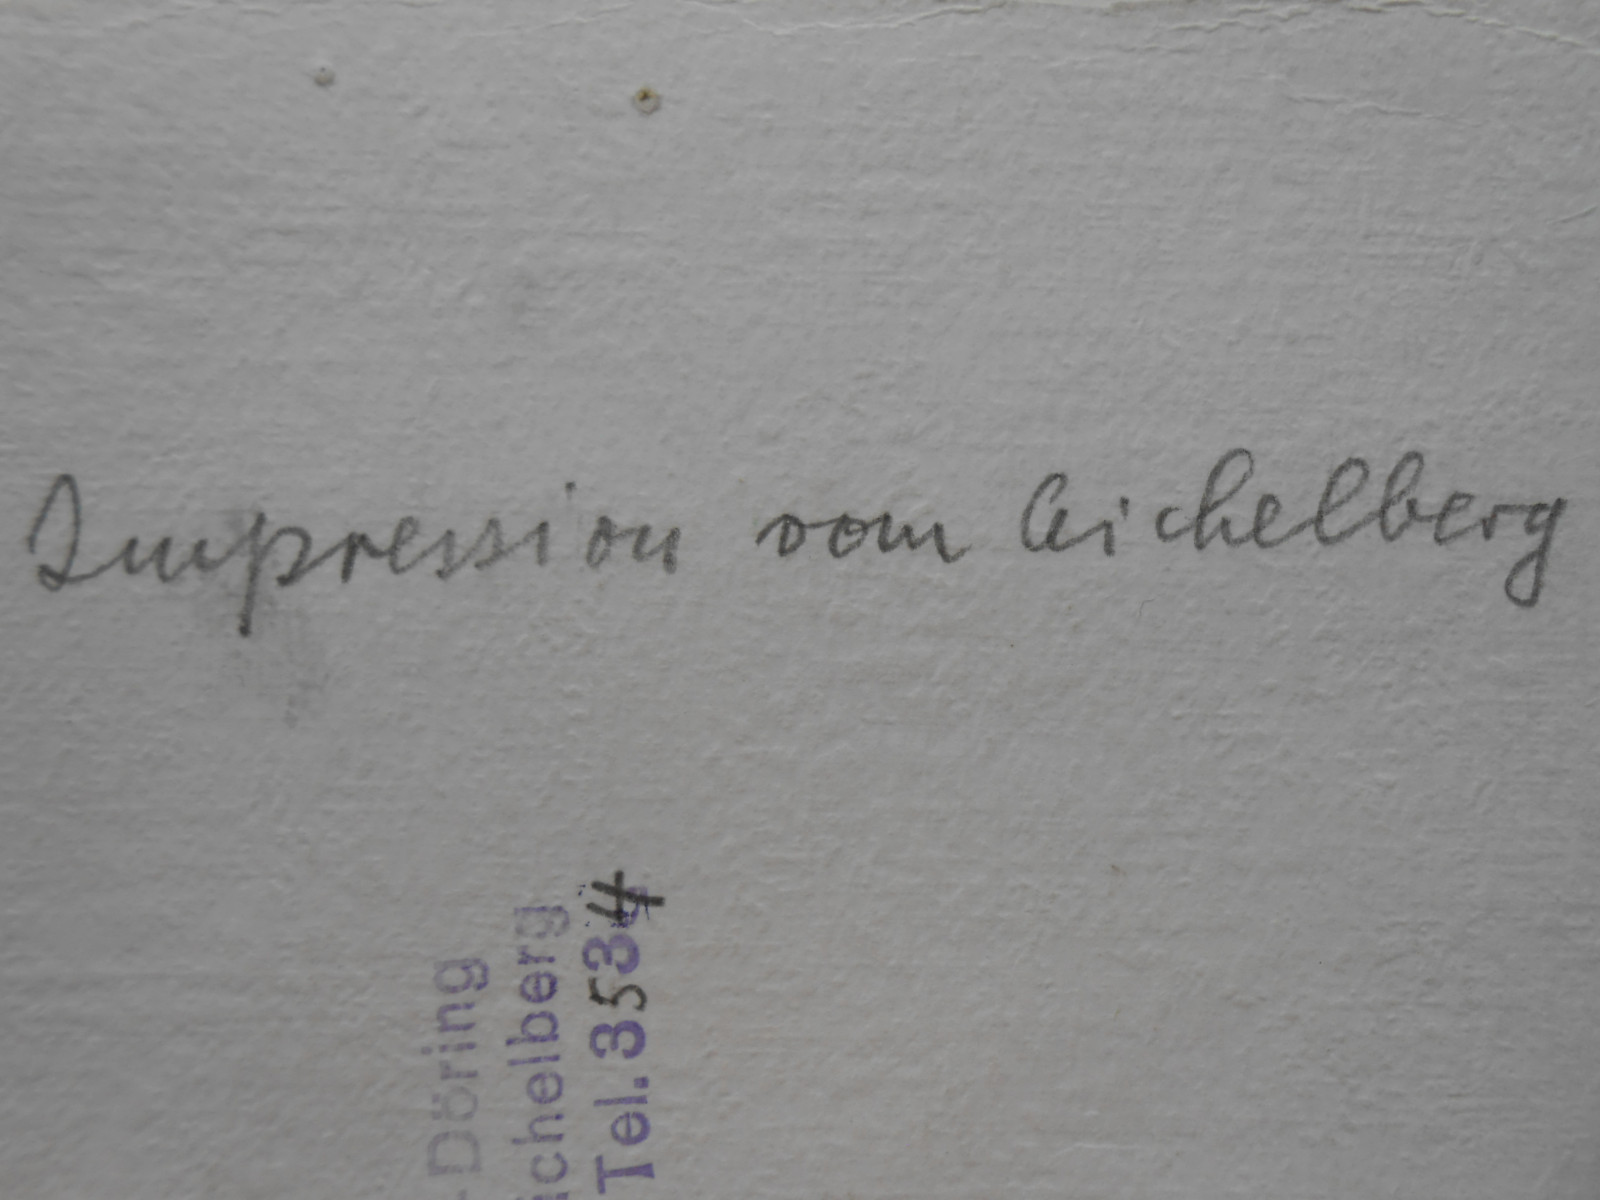 Impression vom Aichelberg
-Döring
ichelberg
Tel. 3534